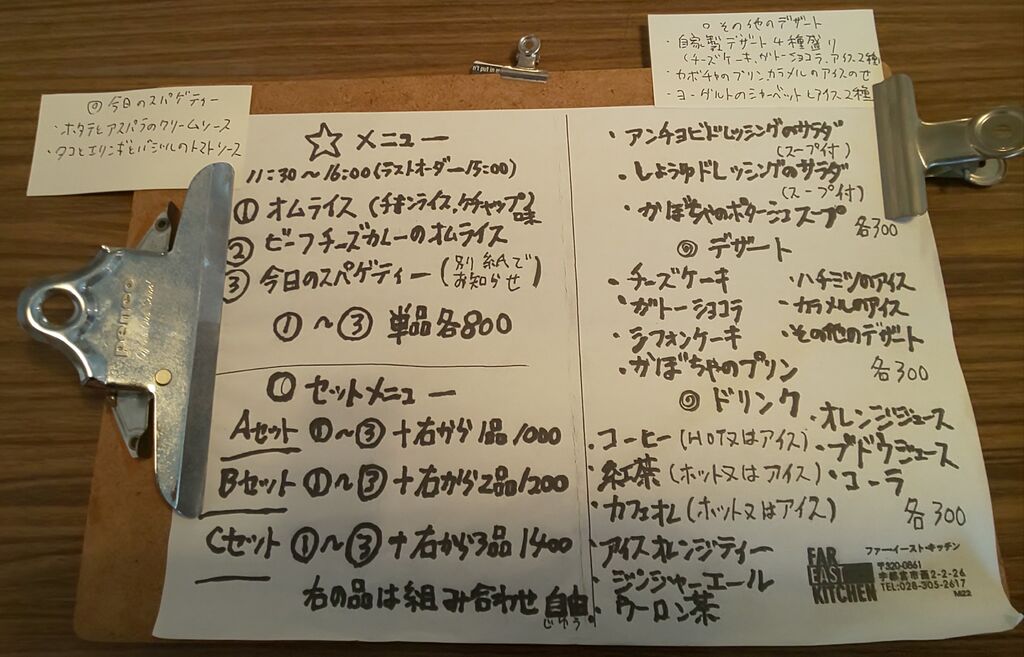 ◎今日のスパゲティー
・ホタテとアスパラのクリームソース
・タコとエリンギとバジルのトマトソース
○その他のデザート
・自家製デザート4種盛り
(チーズケーキ、ガトーショコラ、アイス2種
・カボチャのプリンカラメルのアイスのせ
・ヨーグルトのシャーベットとアイス2種
☆メニュー
11:30~16:00(ラストオーダー15:00)
①オムライス(チキンライス、ケチャップ味)
②ビーフチーズカレーのオムライス
③今日のスパゲティー(別紙でお知らせ)
①~③単品各800
セットメニュー
Aセット①~③+右から1品1000
Bセット①~③+右から2品1200
Cセット①~③+右から3品1400
右の品は組み合わせ自由。
じゆう
・アンチョビドレッシングのサラダ
(スープ付)
・しょうゆドレッシングのサラダ
(スープ付)
・かぼちゃのポタージュスープ
各300
◎デザート
・チーズケーキ
・ガトーショコラ
・シフォンケーキ
・かぼちゃのプリン
・ハチミツのアイス
・カラメルのアイス
・その他のデザート
各300
◎ドリンク
・コーヒー(HOT又はアイス)
・紅茶(ホット又はアイス)
・カフェオレ(ホット又はアイス)
・アイスオレンジティー
・ジンジャーエール
・ウーロン茶
・オレンジジュース
・ブドウジュース
・コーラ
各300
FAR
EAST
KITCHEN
ファーイースト・キッチン
〒320-0861
宇都宮市西2-2-26
TEL:028-305-2617
penco